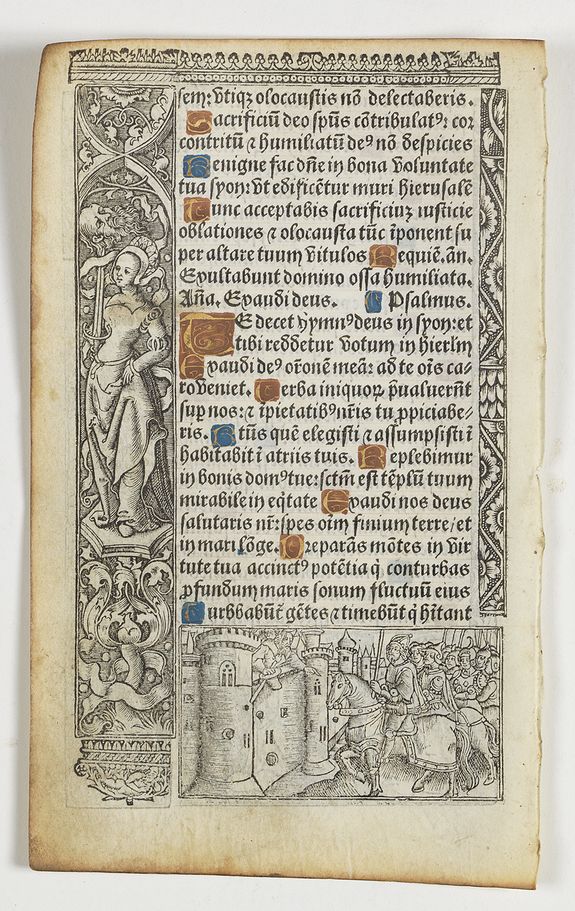 sem: vtiqꝫ olocaustis nō delectaberis.
Sacrificiū deo spūs cōtribulatꝰ: cor
contritū ⁊ humiliatū deꝰ nō despicies
Benigne fac dn̄e in bona voluntate
tua syon: vt edificētur muri hierusalē
Tunc acceptabis sacrificiuꝫ iusticie
oblationes ⁊ olocausta tūc īponent su
per altare tuum vitulos Requiē. an̄.
Exultabunt domino ossa humiliata.
Aña. Exaudi deus. Psalmus.
TE decet hymnꝰ deus in syon: et
tibi reddetur votum in hierlm̄
Exaudi deꝰ orōnē meā: ad te oīs ca⸗
ro veniet. Verba iniquoꝝ p̄ualuerūt
sup nos: ⁊ īpietatibꝰ nr̄is tu ꝓpiciabe⸗
ris. Btūs quē elegisti ⁊ assumpsisti ī
habitabit ī atriis tuis. Replebimur
in bonis domꝰ tue: sctm̄ est tēplū tuum
mirabile in eqtate Exaudi nos deus
salutaris nr̄: spes oīm finium terre/ et
in mari lōge. Preparās mōtes in vir
tute tua accinctꝰ potētia q̇ conturbas
ꝓfundum maris sonum fluctuū eius
Turbabūt gētes ⁊ timebūt q̇ hītant